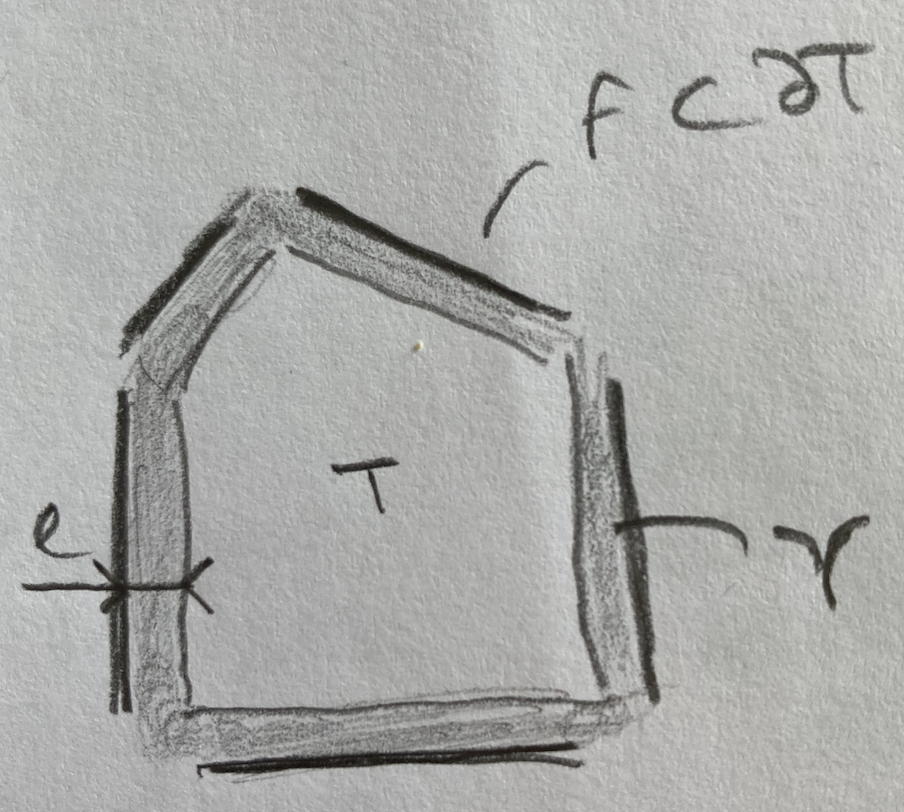 F ⊂ ∂T
T
e
γ